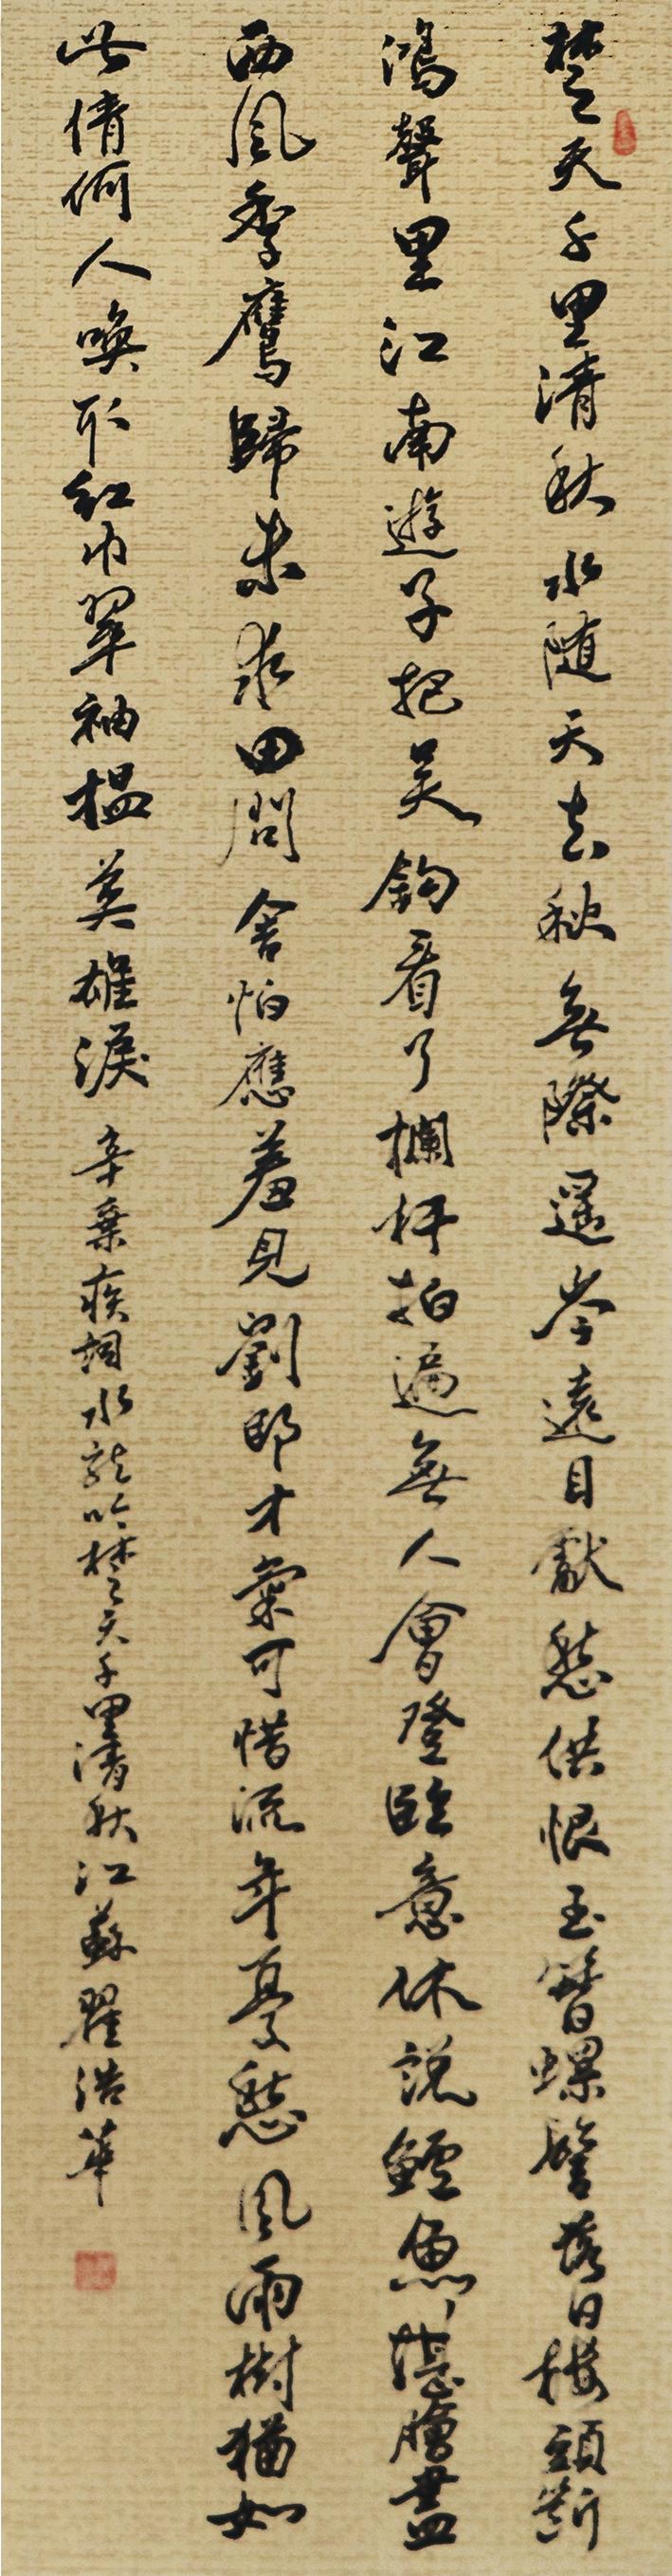 楚天千里清秋水随天去秋無際遥岑遠目獻愁供恨玉簪螺髻落日樓頭斷
鴻聲里江南遊子把吴鉤看了欄杆拍遍無人會登臨意休説鱸魚堪膾盡
西風季鷹歸未求田問舍怕應羞見劉郎才氣可惜流年憂愁風雨樹猶如
此倩何人喚取紅巾翠袖揾英雄淚 辛棄疾詞水龍吟楚天千里清秋江蘇翟浩華